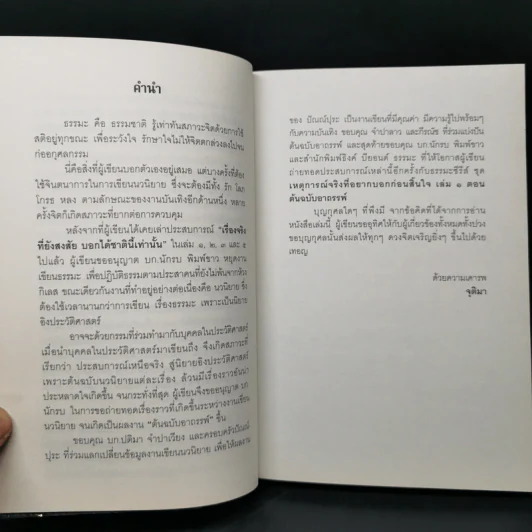 คำนำ
ธรรมะ คือ ธรรมชาติ รู้เท่าทันสภาวะจิตด้วยการใช้
สติอยู่ทุกขณะ เพื่อระวังใจ รักษาใจไม่ให้จิตตกล่วงลงไปจน
ก่ออกุศลกรรม
นี่คือสิ่งที่ผู้เขียนบอกตัวเองอยู่เสมอ แต่บางครั้งที่ต้อง
ใช้จินตนาการในการเขียนนวนิยาย ซึ่งจะต้องมีทั้ง รัก โลภ
โกรธ หลง ตามลักษณะของงานบันเทิงอีกด้านหนึ่ง หลาย
ครั้งจิตก็เกิดสภาวะที่ยากต่อการควบคุม
หลังจากที่ผู้เขียนได้เคยเล่าประสบการณ์ "เรื่องจริง
ที่ยังสงสัย บอกได้ชาตินี้เท่านั้น" ในเล่ม ๑, ๒, ๓ และ ๕
ไปแล้ว ผู้เขียนขออนุญาต บก.นักรบ พิมพ์ขาว หยุดงาน
เขียนธรรมะ เพื่อปฏิบัติธรรมตามประสาคนที่ยังไม่พ้นจากห้วง
กิเลส ขณะเดียวกันงานที่ทำอยู่อย่างต่อเนื่องคือ นวนิยาย ซึ่ง
ต้องใช้เวลานานกว่าการเขียน เรื่องธรรมะ เพราะเป็นนิยาย
อิงประวัติศาสตร์
อาจจะด้วยกรรมที่ร่วมทำมากับบุคคลในประวัติศาสตร์
เมื่อนำบุคคลในประวัติศาสตร์มาเขียนถึง จึงเกิดสภาวะที่
เรียกว่า ประสบการณ์เหนือจริง สู่นิยายอิงประวัติศาสตร์
เพราะต้นฉบับนวนิยายแต่ละเรื่อง ล้วนมีเรื่องราวอันน่า
ประหลาดใจเกิดขึ้น จนกระทั่งที่สุด ผู้เขียนจึงขออนุญาต บก.
นักรบ ในการขอถ่ายทอดเรื่องราวที่เกิดขึ้นระหว่างงานเขียน
นวนิยาย จนเกิดเป็นผลงาน "ต้นฉบับอาถรรพ์" ขึ้น
ขอบคุณ บก.ปติมา จำปาเวียง และครอบครัวปัณณ์
ปุระ ที่ร่วมแลกเปลี่ยนข้อมูลงานเขียนนวนิยาย เพื่อให้ผลงาน
ของ ปัณณ์ปุระ เป็นงานเขียนที่มีคุณค่า มีความรู้ไปพร้อมๆ
กับความบันเทิง ขอบคุณ จำปาลาว และภีรณัช ที่ร่วมแบ่งปัน
ต้นฉบับอาถรรพ์ และสุดท้ายขอบคุณ บก.นักรบ พิมพ์ขาว
และสำนักพิมพ์อิงค์ บียอนด์ ธรรมะ ที่ให้โอกาสผู้เขียน
ถ่ายทอดประสบการณ์เหล่านี้อีกครั้งกับธรรมะซีรีส์ ชุด
เหตุการณ์จริงที่อยากบอกก่อนสิ้นใจ เล่ม ๑ ตอน
ต้นฉบับอาถรรพ์
บุญกุศลใดๆ ที่พึงมี จากข้อคิดที่ได้จากการอ่าน
หนังสือเล่มนี้ ผู้เขียนขออุทิศให้กับผู้เกี่ยวข้องทั้งหมดทั้งปวง
ขอบุญกุศลนั้นส่งผลให้ทุกๆ ดวงจิตเจริญยิ่งๆ ขึ้นไปด้วย
เทอญ
ด้วยความเคารพ
จุติมา